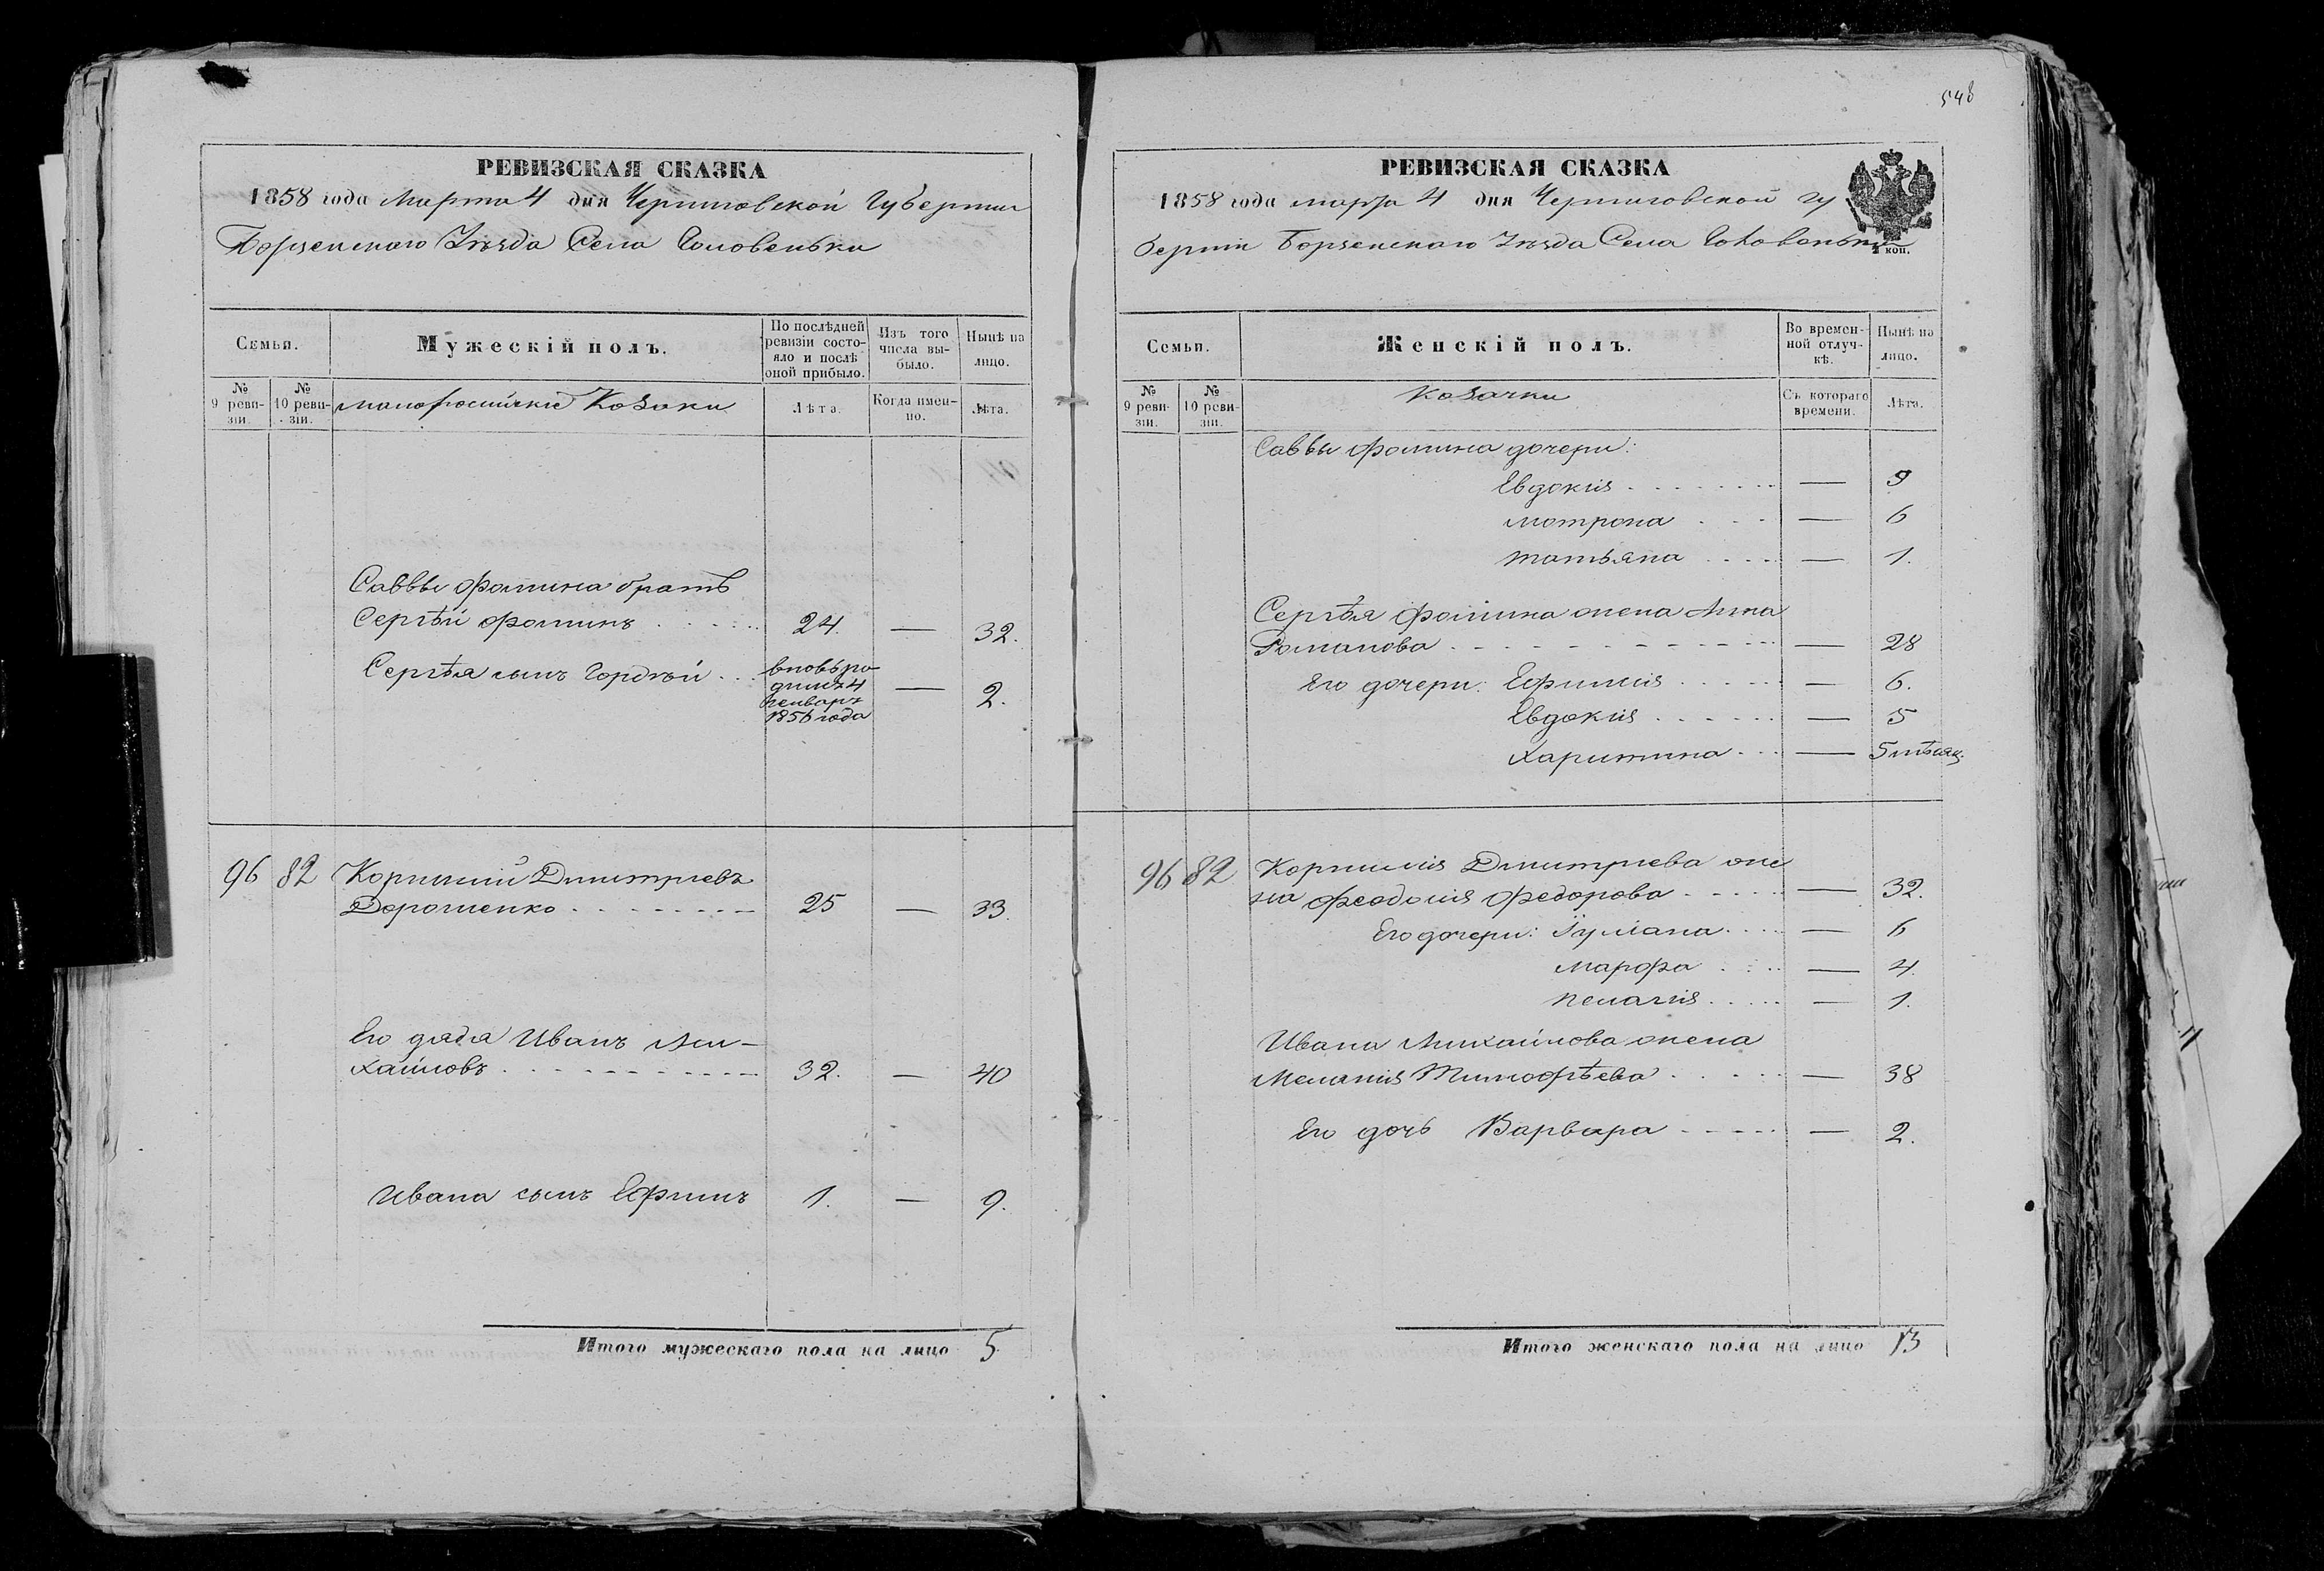 РЕВИЗСКАЯ СКАЗКА
1858 года Марта 4 дня Черниговской Губернии
Борзенскаго Уѣзда Села Головеньки
Семьи.
Мужескій полъ.
По послѣдней ревизіи состояло и послѣ оной прибыло.
Изъ того числа выбыло.
Нынѣ на лицо.
№ 9 ревизіи.
№ 10 ревизіи.
малоросійскіе Козаки
Лѣта.
Когда именно.
Лѣта.
Саввы Фомина братъ
Сергѣй Фоминъ 24. — 32.
Сергѣя сынъ Гордѣй вновь ро-
дился 4
Генваря
1856 года — 2.
96 82 Корнилій Дмитріевъ
Дорошенко 25 — 33.
Его дядя Иванъ Ми-
хайловъ 32. — 40
Ивана сынъ Ефимъ 1. — 9.
Итого мужескаго пола на лицо 5.
548
РЕВИЗСКАЯ СКАЗКА
1858 года марта 4 дня Черниговской Гу
берніи Борзенскаго Уѣзда Села Головеньки
коп.
Семьи.
Женскій полъ.
Во временной отлучкѣ.
Нынѣ на лицо.
№ 9 ревизіи.
№ 10 ревизіи.
Козачки
Съ котораго времени.
Лѣта.
Саввы Фомина дочери:
Евдокія — 9
Мотрона — 6
Татьяна — 1.
Сергѣя Фомина жена Анна
Романова — 28
Его дочери: Ефимія — 6.
Евдокія — 5
Харитина — 5 мѣсяц.
96 82 Корнилія Дмитріева же
на Феодосія Федорова — 32.
Его дочери: Іуліана — 6
Марфа — 4.
Пелагія — 1.
Ивана Михайлова жена
Меланія Тимофѣева — 38
Его дочь Варвара — 2.
Итого женскаго пола на лицо 13